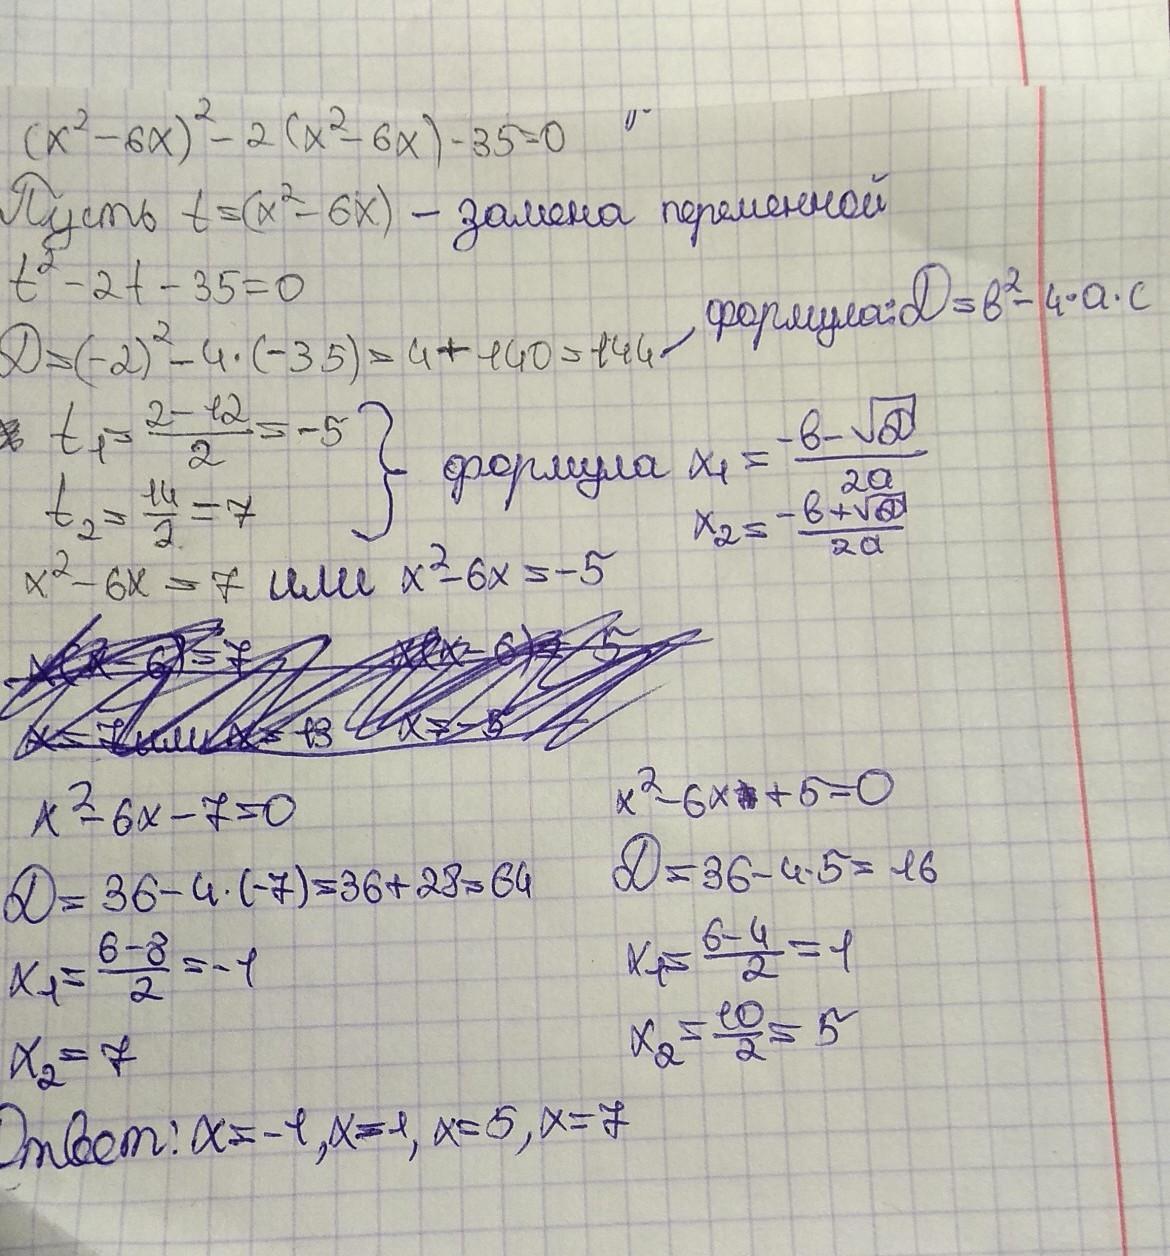 (x²-6x)²-2(x²-6x)-35=0
Пусть t=(x²-6x) - замена переменной
t²-2t-35=0
D=(-2)²-4·(-35)=4+140=144
формула: D=b²-4·a·c
t₁=(2-12)/2=-5
t₂=14/2=7
формула x₁=(-b-√D)/2a
x₂=(-b+√D)/2a
x²-6x=7 или x²-6x=-5
x(x-6)=7 x(x-6)=-5
x=7 или x=13 x=-5
x²-6x-7=0
D=36-4·(-7)=36+28=64
x₁=(6-8)/2=-1
x₂=7
x²-6x+5=0
D=36-4·5=16
x₁=(6-4)/2=1
x₂=10/2=5
Ответ: x=-1, x=1, x=5, x=7